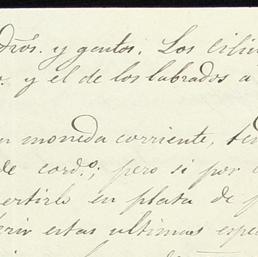 drós. y gentos. Los cilin
y el de los labrados a
n moneda corriente, ten
de cord.º; pero si por
ertirlo en plata de p
rir estas ultimas espe